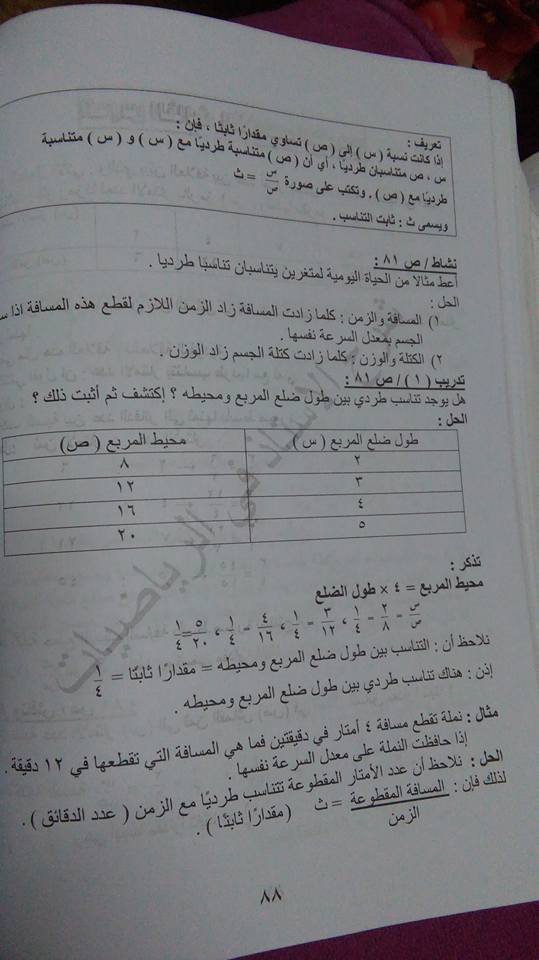 تعريف :
إذا كانت نسبة ( س ) إلى ( ص ) تساوي مقدارًا ثابتًا ، فإن :
س ، ص متناسبان طرديًا ، أي أن ( ص ) متناسبة طرديًا مع ( س ) و ( س ) متناسبة
طرديًا مع ( ص ) . وتكتب على صورة س/ص = ث
ويسمى ث : ثابت التناسب .
نشاط / ص ٨١ :
أعط مثالا من الحياة اليومية لمتغرين يتناسبان تناسبًا طرديا .
الحل :
١) المسافة والزمن : كلما زادت المسافة زاد الزمن اللازم لقطع هذه المسافة اذا
الجسم بمعدل السرعة نفسها .
٢) الكتلة والوزن : كلما زادت كتلة الجسم زاد الوزن .
تدريب ( ١ ) / ص ٨١ :
هل يوجد تناسب طردي بين طول ضلع المربع ومحيطه ؟ إكتشف ثم أثبت ذلك ؟
الحل :
طول ضلع المربع ( س ) محيط المربع ( ص )
٢ ٨
٣ ١٢
٤ ١٦
٥ ٢٠
تذكر :
محيط المربع = ٤ × طول الضلع
س/ص = ٢/٨ = ١/٤ ، ٣/١٢ = ١/٤ ، ٤/١٦ = ١/٤ ، ٥/٢٠ = ١/٤
نلاحظ أن : التناسب بين طول ضلع المربع ومحيطه = مقدارًا ثابتًا = ١/٤
إذن : هناك تناسب طردي بين طول ضلع المربع ومحيطه .
مثال : نملة تقطع مسافة ٤ أمتار في دقيقتين فما هي المسافة التي تقطعها في ١٢ دقيقة .
إذا حافظت النملة على معدل السرعة نفسها .
الحل : نلاحظ أن عدد الأمتار المقطوعة تتناسب طرديًا مع الزمن ( عدد الدقائق ) .
لذلك فإن : المسافة المقطوعة/الزمن = ث ( مقدارًا ثابتًا ) .
٨٨